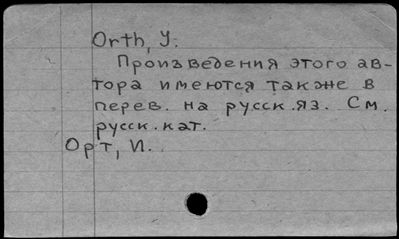 Orth, Y.
Произведения этого ав-
тора имеются также в
перев. на русск.яз. См.
русск.кат.
Орт, И.